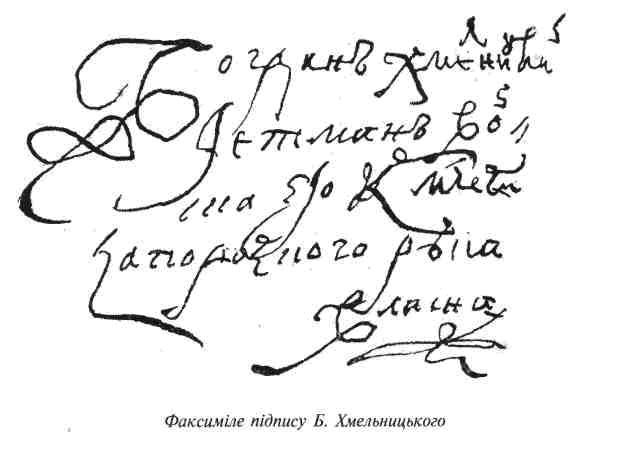 Богданъ Хмелницкий
Гетманъ вой
ска его К милости
Запорозкого рука
власна
Факсиміле підпису Б. Хмельницького